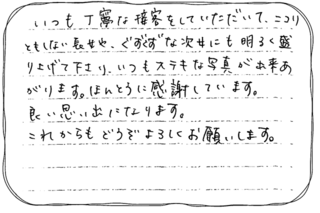 いつも丁寧な接客をしていただいて、ニコリ
ともしない長女や、ぐずぐずな次女にも明るく盛
り上げて下さり、いつもステキな写真が出来あ
がります。ほんとうに感謝しています。
良い思い出になります。
これからもどうぞよろしくお願いします。